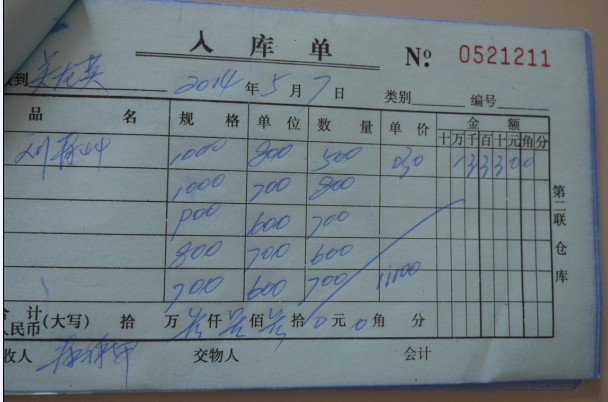 入库单 № 0521211
到 2014年5月7日 类别 编号
品名 规格 单位 数量 单价 金额
十万千百十元角分
1000 800 500 030 133300
1000 700 800
900 600 700
800 700 600
700 600 700 11100
第二联 仓库
合计人民币(大写) 拾 万 仟 佰 拾 0元 0角 分
收人 交物人 会计